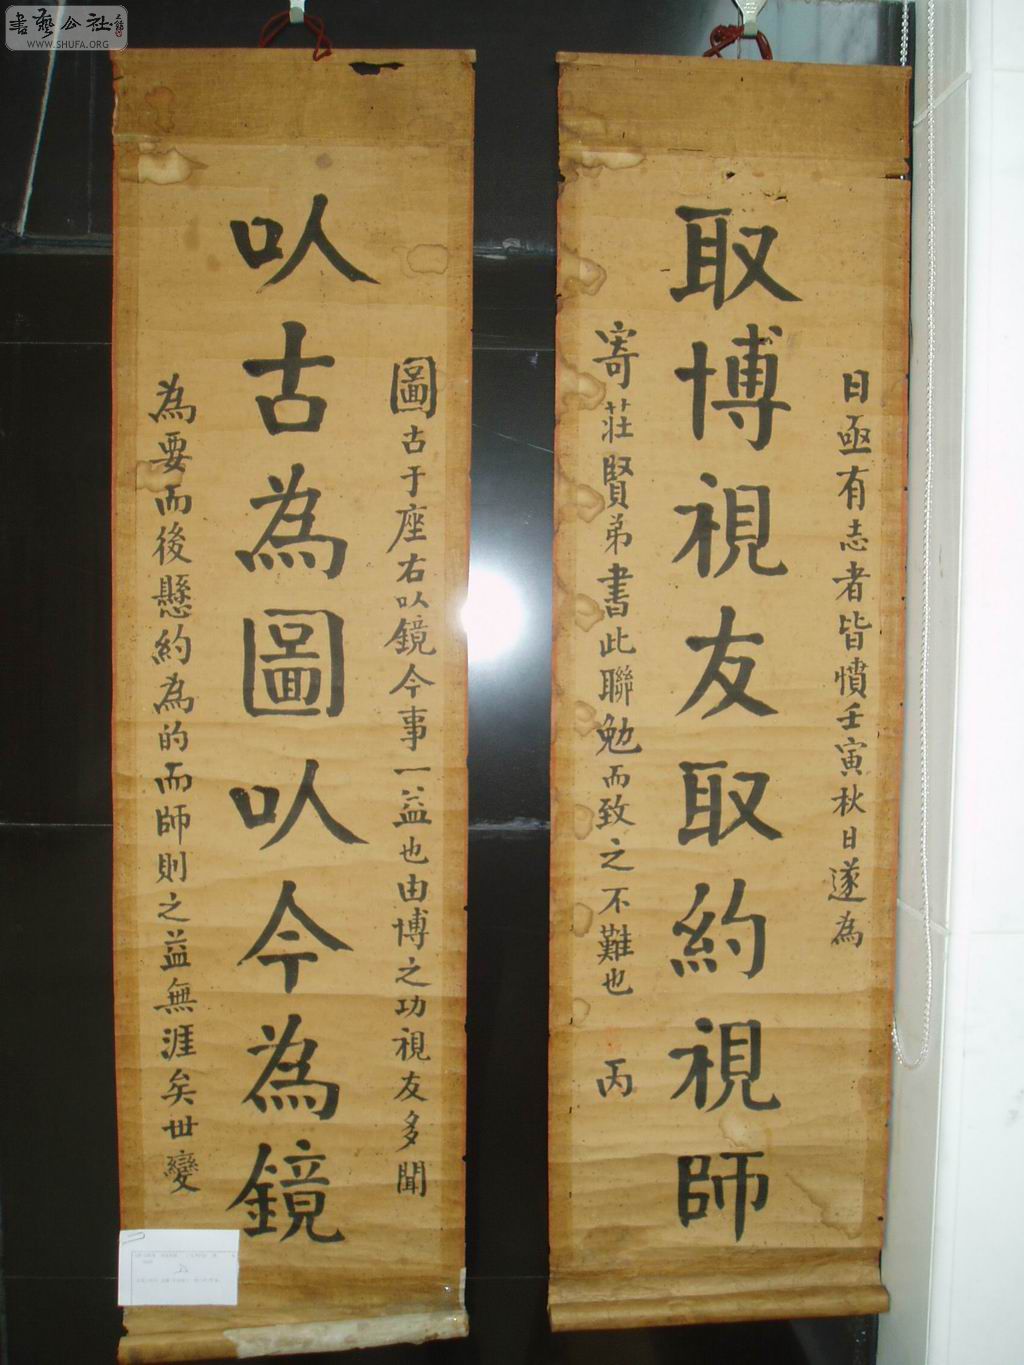 書藝公社
WWW.SHUFA.ORG
圖古于座右以鏡今事一益也由博之功視友多聞
㕥古為圖㕥今為鏡
為要而後懸約為的而師則之益無涯矣世變
日亟有志者皆憤壬寅秋日遂為
取博視友取約視師
寄莊賢弟書此聯勉而致之不難也 丙